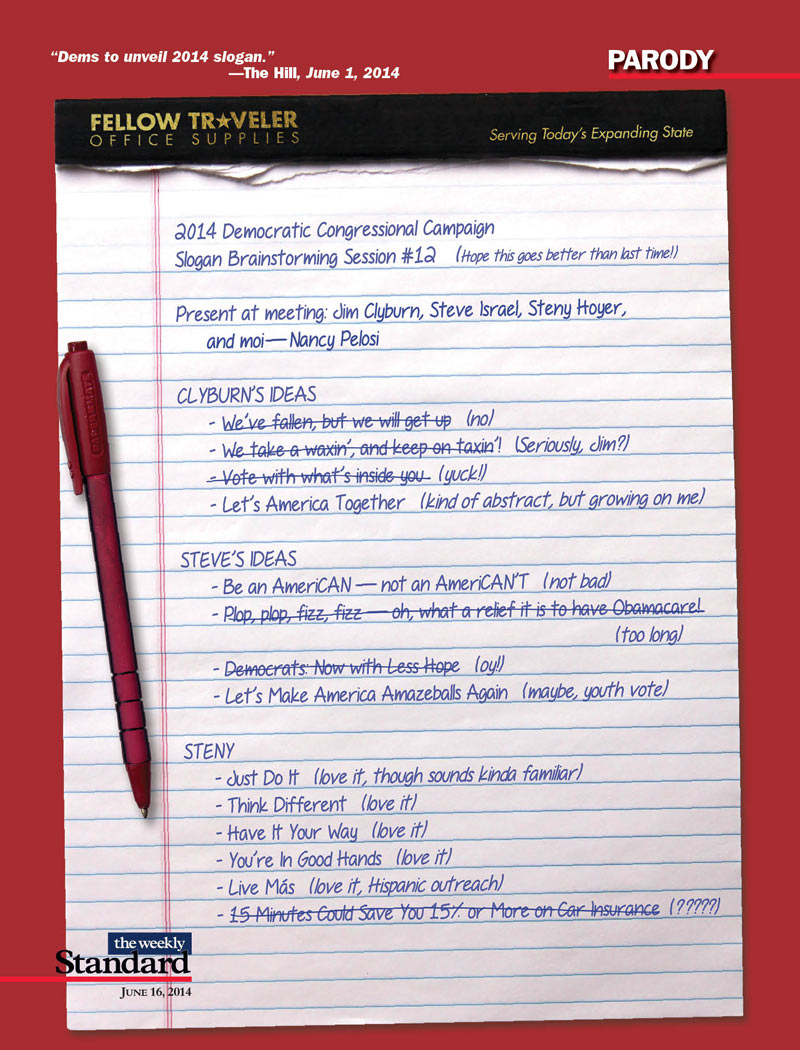 “Dems to unveil 2014 slogan.”
—The Hill, June 1, 2014
PARODY
FELLOW TR★VELER
OFFICE SUPPLIES
Serving Today’s Expanding State
2014 Democratic Congressional Campaign
Slogan Brainstorming Session #12 (Hope this goes better than last time!)
Present at meeting: Jim Clyburn, Steve Israel, Steny Hoyer,
and moi—Nancy Pelosi
CLYBURN’S IDEAS
- We’ve fallen, but we will get up (no)
- We take a waxin’, and keep on taxin’! (Seriously, Jim?)
- Vote with what’s inside you (yuck!)
- Let’s America Together (kind of abstract, but growing on me)
STEVE’S IDEAS
- Be an AmeriCAN — not an AmeriCAN’T (not bad)
- Plop, plop, fizz, fizz — oh, what a relief it is to have Obamacare!
(too long)
- Democrats: Now with Less Hope (oy!)
- Let’s Make America Amazeballs Again (maybe, youth vote)
STENY
- Just Do It (love it, though sounds kinda familiar)
- Think Different (love it)
- Have It Your Way (love it)
- You’re In Good Hands (love it)
- Live Más (love it, Hispanic outreach)
- 15 Minutes Could Save You 15% or More on Car Insurance (?????)
the weekly
Standard
JUNE 16, 2014